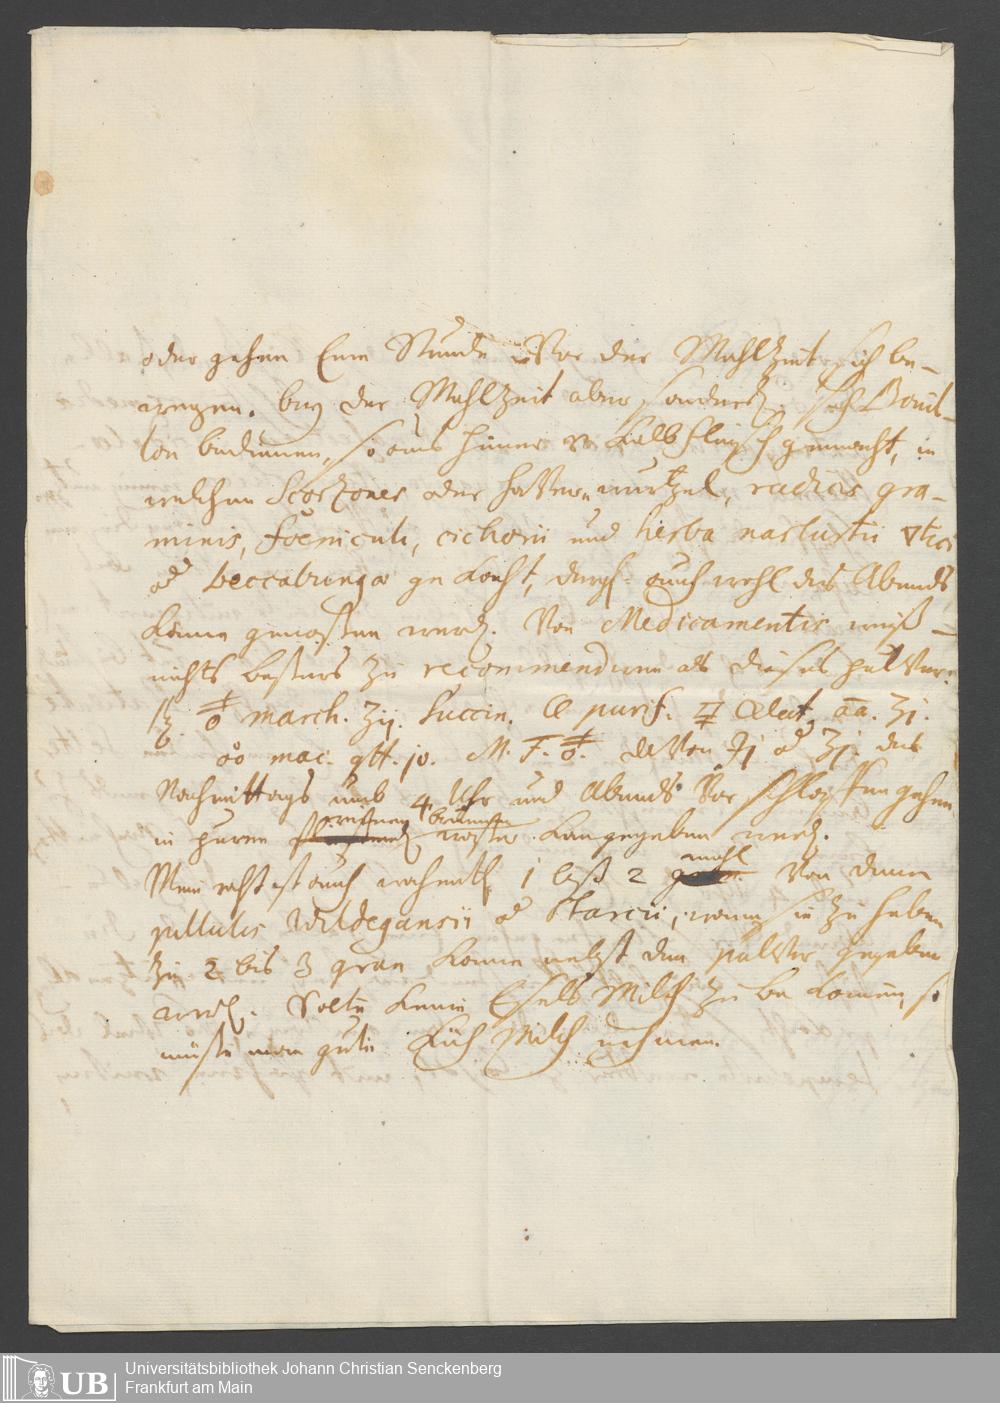 oder gehen Eine Stunde Vor der Mahlzeit sich be-
wegen. bey der Mahlzeit aber sonderl. sich Bouil-
lon bedienen, so aus Hüner u Kalbfleisch gemacht, in
welchen Scorzoner oder haver-wurtzel, radicis gra-
minis, foeniculi, cichorii und herba nasturtii
od beccabungae gekocht, auch wohl des Abends
könne genossen werd. Von Medicamentis weiß
nichts bessers zu recommendiren als dieses pulver:
march. ʒij. Succin. purif. āā. ʒj.
mac. gtt. jv. M. F. davon od ʒj. des
Nachmittags umb 4 Uhr und Abends Vor schlaffen gehen
in puren brunnen wasser kan gegeben werd.
1 biß 2 mahl Von denen
pillulis Wildegansii od Starcii, wenn sie zu haben
zu 2 bis 3 gran könne nebst dem pulver gegeben
werd. Solte keine Esels Milch zu bekomen, so
müste man gute Küh Milch nehmen.
Universitätsbibliothek Johann Christian Senckenberg
Frankfurt am Main
UB